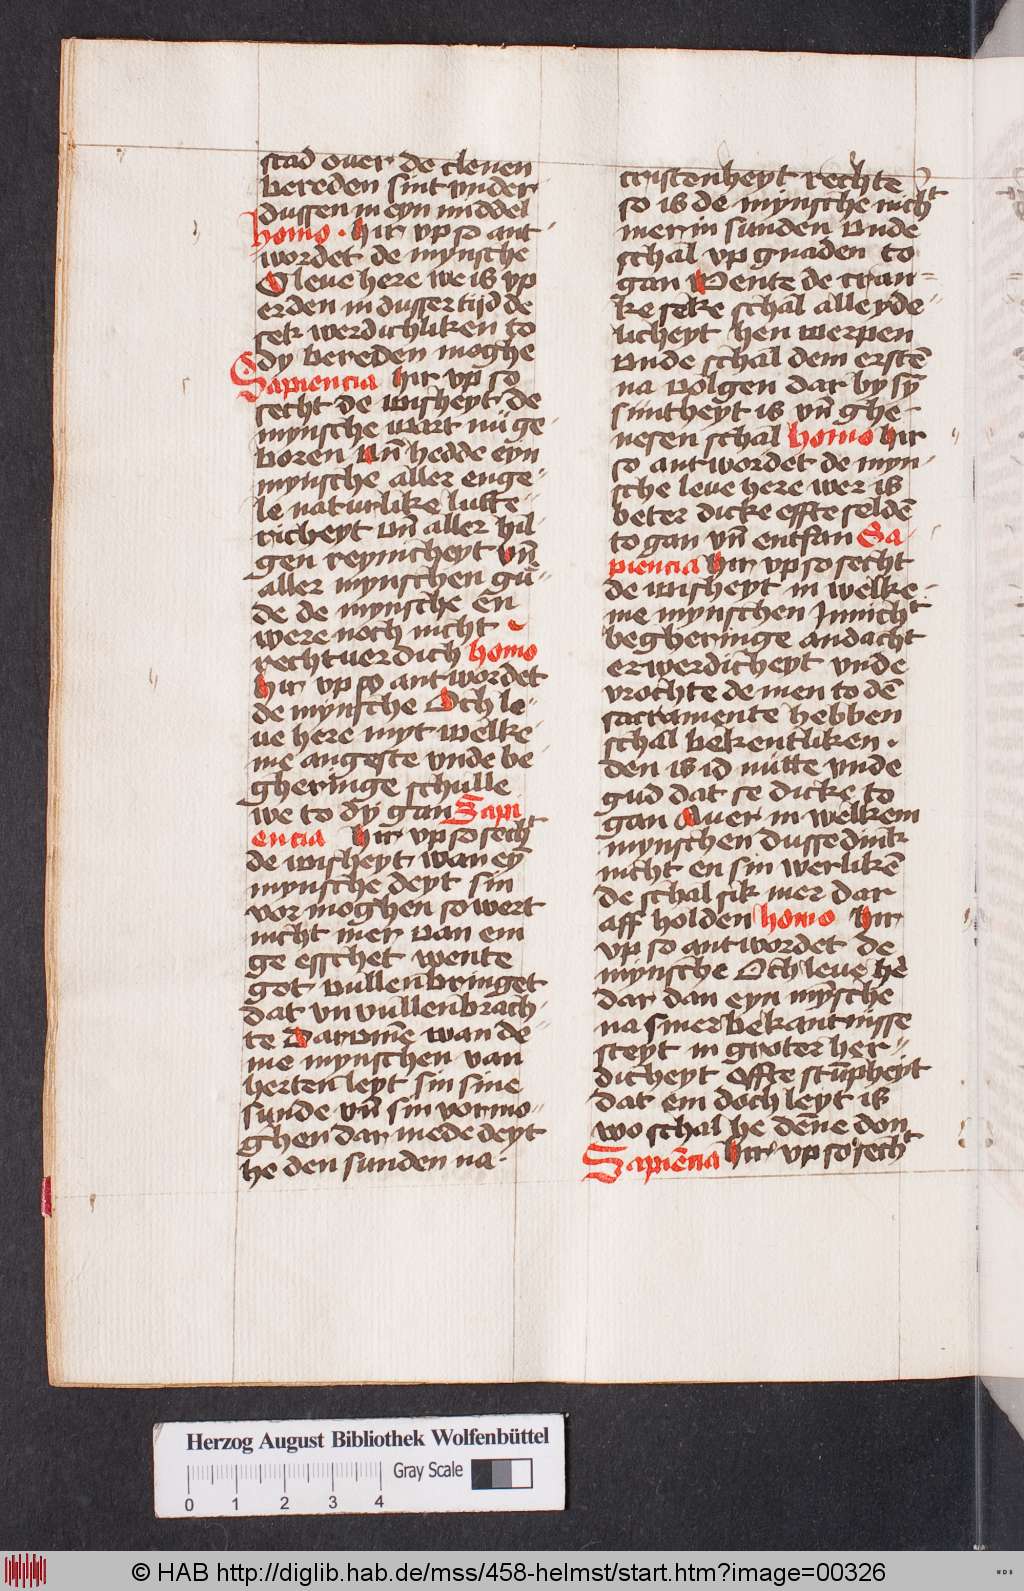 stad ouer de cleuen
bereden sint vnder
dussen in eyn middel
homo · hir vp so ant
wordet de mynsche
O leue here we is vp
erden in dusser tijd de
sek werdichliken to
dy bereden moghe
Sapiencia hir vp so
secht de wisheyt de
mynsche wart nü ge
boren vn̄ hedde eyn
mynsche aller enge-
le naturlike lutte-
richeyt vn̄ aller hil-
gen reynicheyt vn̄
aller mynschen gu-
de de mynsche en
were noch nicht
rechtuerdich homo
hir vp so antwordet
de mynsche Och le-
ue here myt welke
me angeste vnde be
gheringe schulle
we to dy gan Sapi
encia hir vp so secht
de wisheyt wan ey
mynsche deyt sin
vor moghen so wert
nicht mer van em
ge esschet wente
got vullenbringet
dat vnvullenbrach-
te Darvme wan de-
me mynschen van
herten leyt sin sine
sunde vn̄ sin vormo-
ghen dar mede deyt
he den sunden na ·
cristenheyt rechte
so is de mynsche nicht
mer in sunden vnde
schal vp gnaden to
gan Wente de cran-
ke seke schal alle yde-
licheyt hen werpen
vnde schal dem erstē
na volgen dar by sȳ
süntheyt is vn̄ ghe-
nesen schal homo hir
so antwordet de myn-
sche leue here wer is
beter dicke effte seldē
to gan vn̄ entfan Sa-
piencia hir vp so secht
de wisheyt in welke-
me mynschen Innicht
begheringe andacht
erwerdicheyt vnde
vrochte de men to dē
sacramente hebben
schal bekentliken ·
den is id nütte vnde
gud dat se dicke to
gan Auer in welkem
mynschen dusse dink
nicht en sin werlikē
de schal sik mer dar
aff holden homo hir
vp so antwordet de
mynsche Och leue he
dar dan eyn mȳsche
na siner bekantnisse
steyt in groter her-
dicheyt effte stūpheyt
dat em doch leyt is
wo schal he dēne don
Sapiēcia hir vp so secht
Herzog August Bibliothek Wolfenbüttel
0 1 2 3 4
Gray Scale
© HAB http://diglib.hab.de/mss/458-helmst/start.htm?image=00326